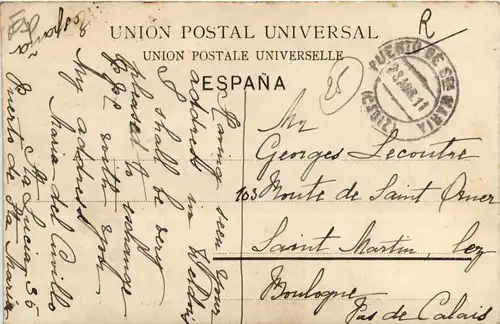 UNION POSTAL UNIVERSAL
UNION POSTALE UNIVERSELLE
ESPAÑA
R
25
PUERTO DE STA MARIA
23 11
(CADIZ)
Mr
Georges Lecoutre
103 Route de Saint Omer
Saint Martin, lez
Boulogne
Pas de Calais
Having seen your
address in
I shall be very
pleased to exchange
p.p.c. with you
My address
Maria del Carrillo
Sta Lucia, 35
Puerto de Sta Maria
España